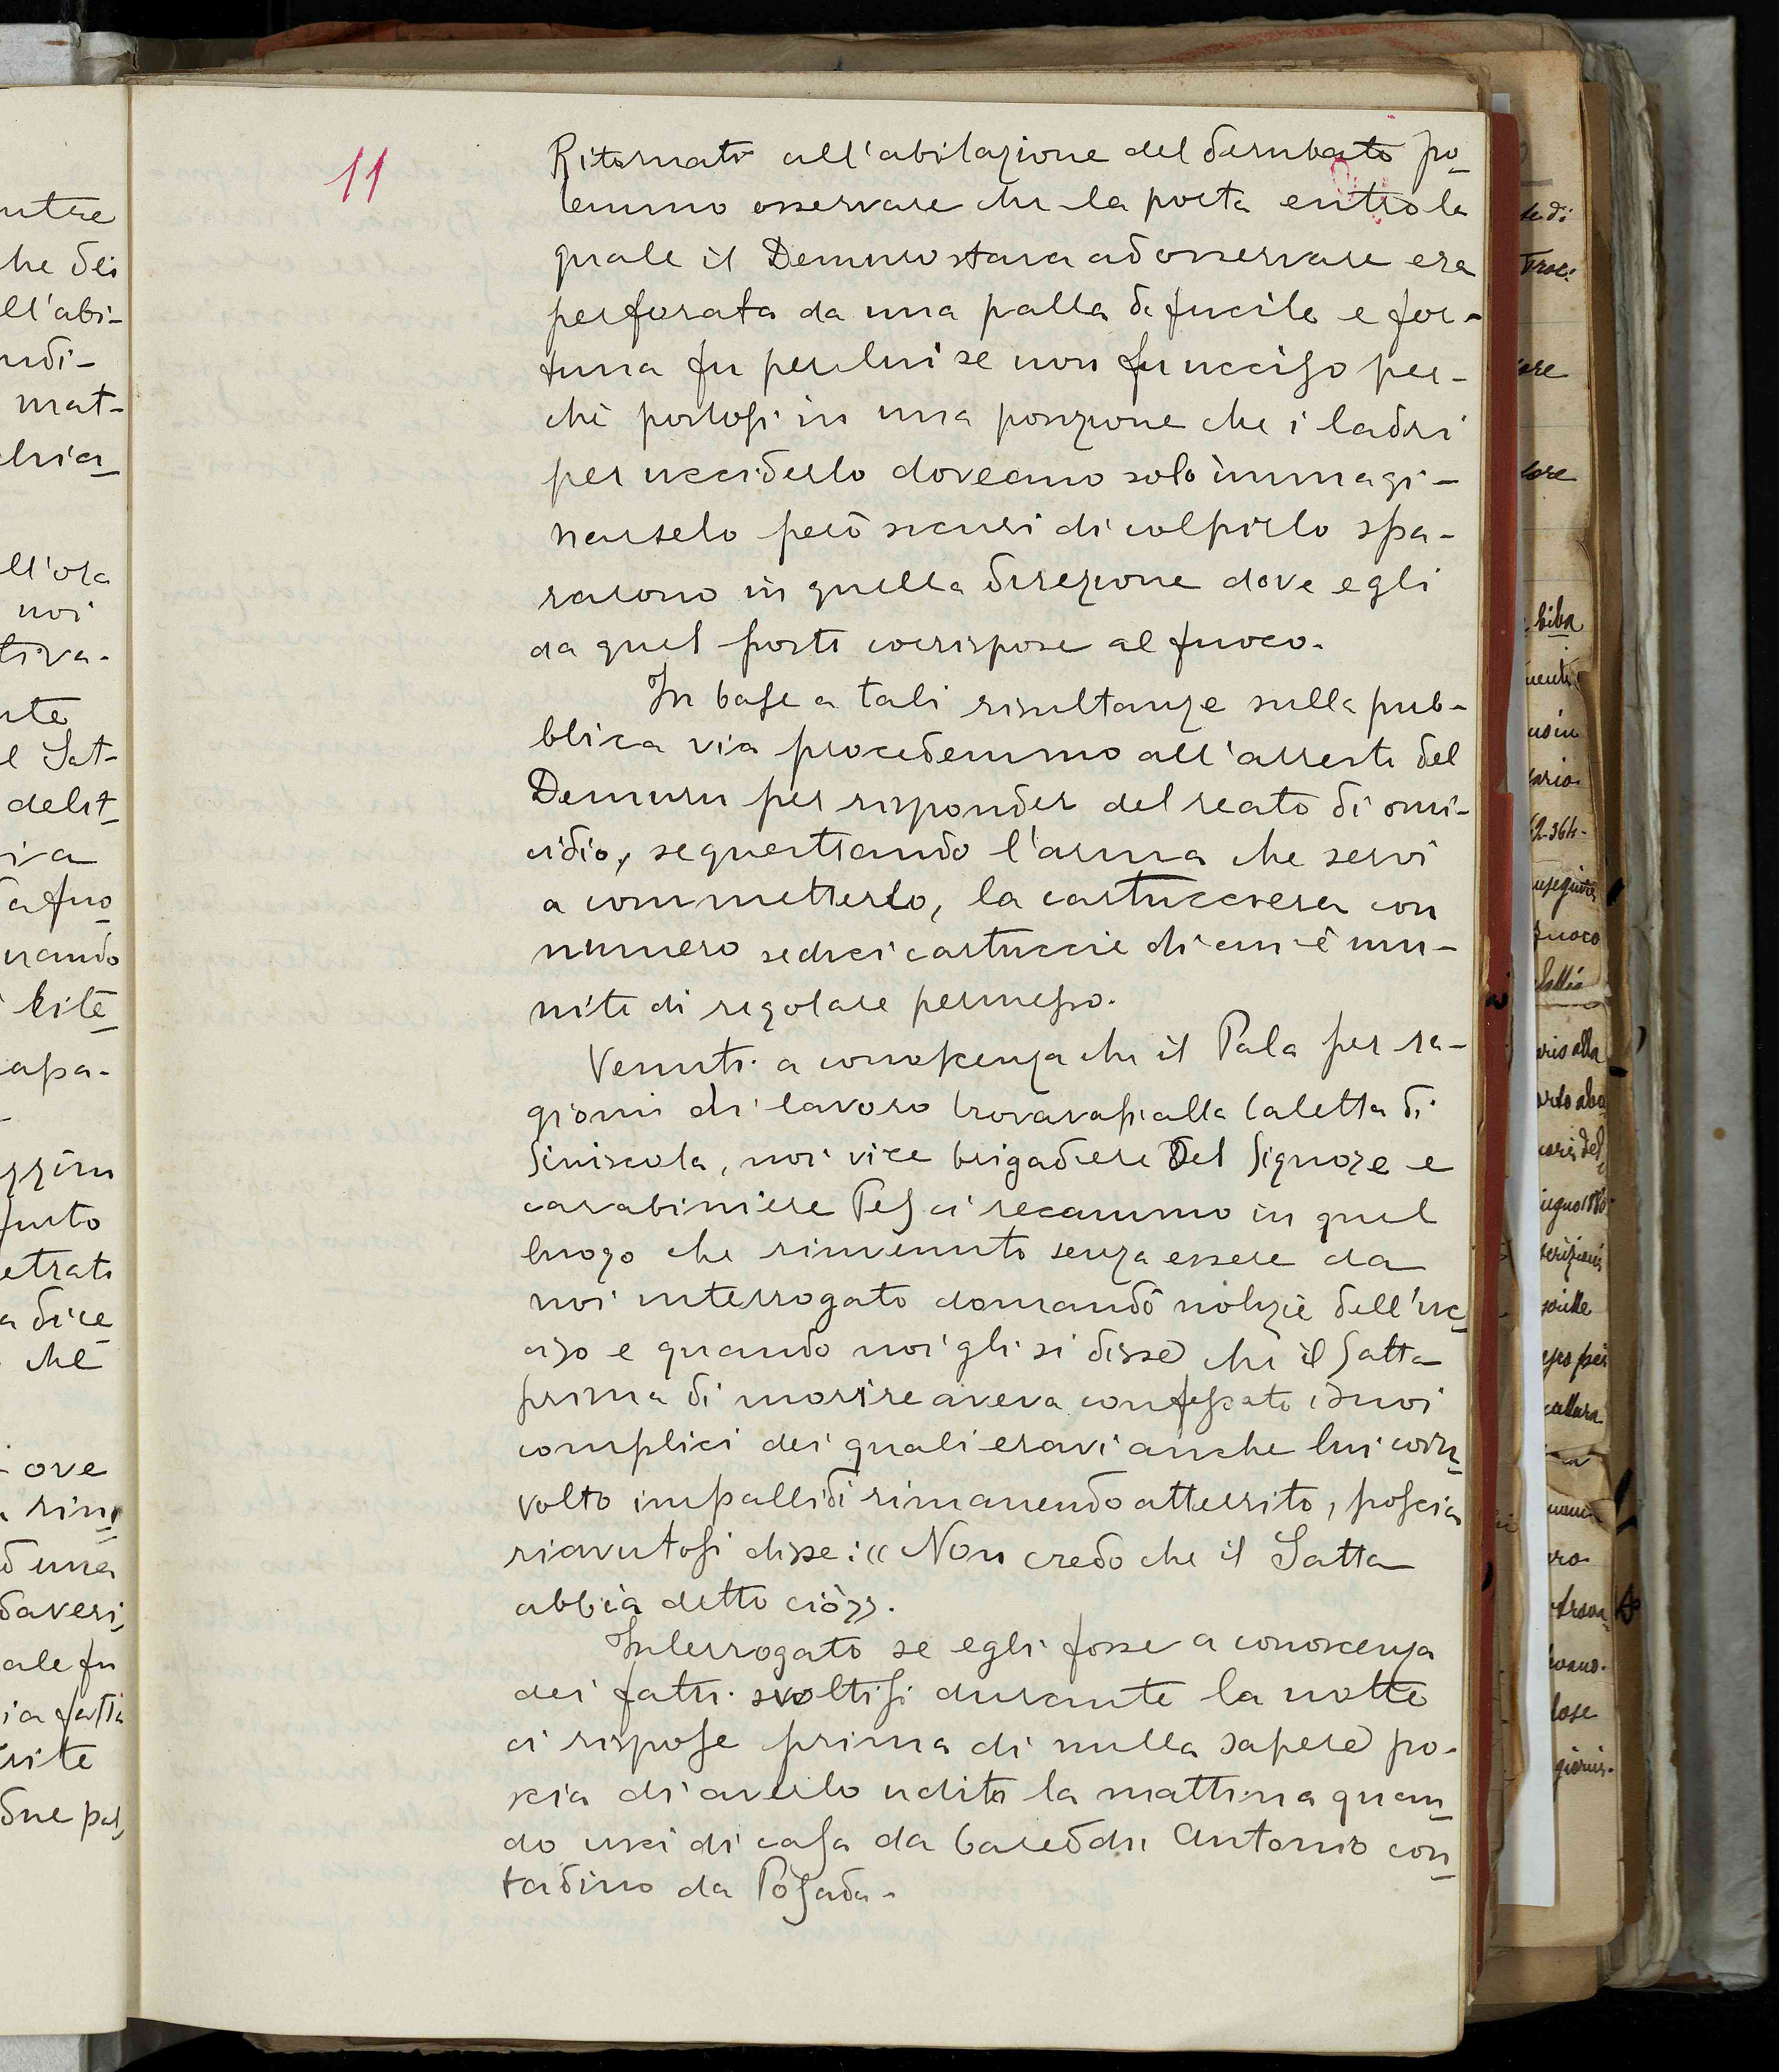 11
Ritornati all'abitazione del derubato po-
temmo osservare che la porta entro la
quale il Demuro stava ad osservare era
perforata da una palla di fucile e for-
tuna fu per lui se non fu ucciso per-
chè postosi in una posizione che i ladri
per ucciderlo doveano solo immagi-
narselo però sicuri di colpirlo spa-
rarono in quella direzione dove egli
da quel posto corrispose al fuoco.
In base a tali risultanze sulla pub-
blica via procedemmo all'arresto del
Demuru per risponder del reato di omi-
cidio, sequestrando l'arma che servì
a commetterlo, la cartucciera con
numero sedici cartuccie di cui è mu-
nito di regolare permesso.
Venuti a conoscenza che il Pala per ra-
gioni di lavoro trovavasi alla Caletta di
Siniscola, noi vice brigadiere Del Signore e
carabiniere Pes ci recammo in quel
luogo che rinvenuto senza essere da
noi interrogato domandò notizie dell'uc-
ciso e quando noi gli si disse che il Satta
prima di morire aveva confessato i suoi
complici dei quali eravi anche lui coin-
volto impallidì rimanendo atterrito, poscia
riavutosi disse: « Non credo che il Satta
abbia detto ciò ».
Interrogato se egli fosse a conoscenza
dei fatti svoltisi durante la notte
ci rispose prima di nulla sapere po-
scia di averlo udito la mattina quan-
do uscì di casa da Careddu Antonio con-
tadino da Posada.